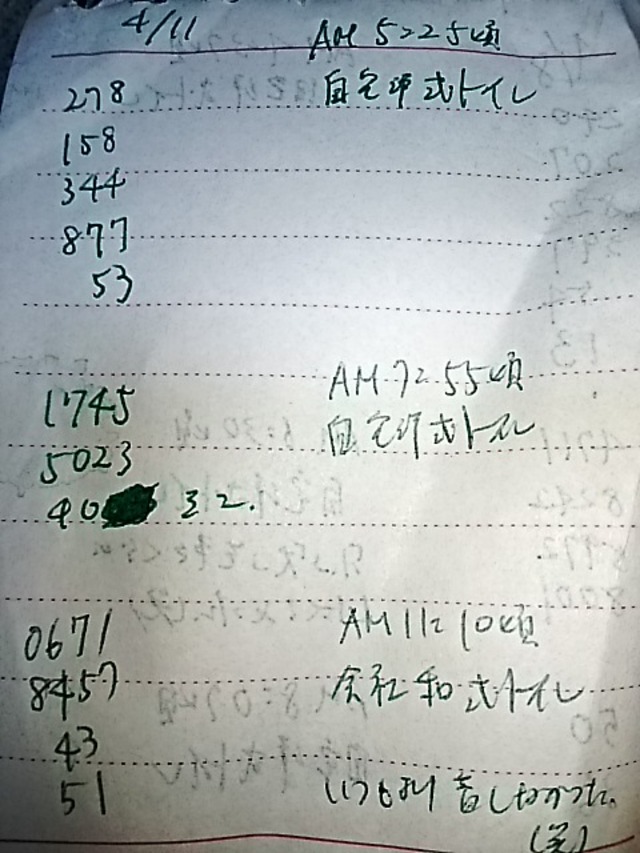 4/11 AM 5:25頃
278 自宅洋式トイレ
158
344
877
53
AM 7:55頃
1745
5023 自宅洋式トイレ
40
0671 AM 11:10頃
8457 会社和式トイレ
43
51 いつもより音しなかった。
(笑)